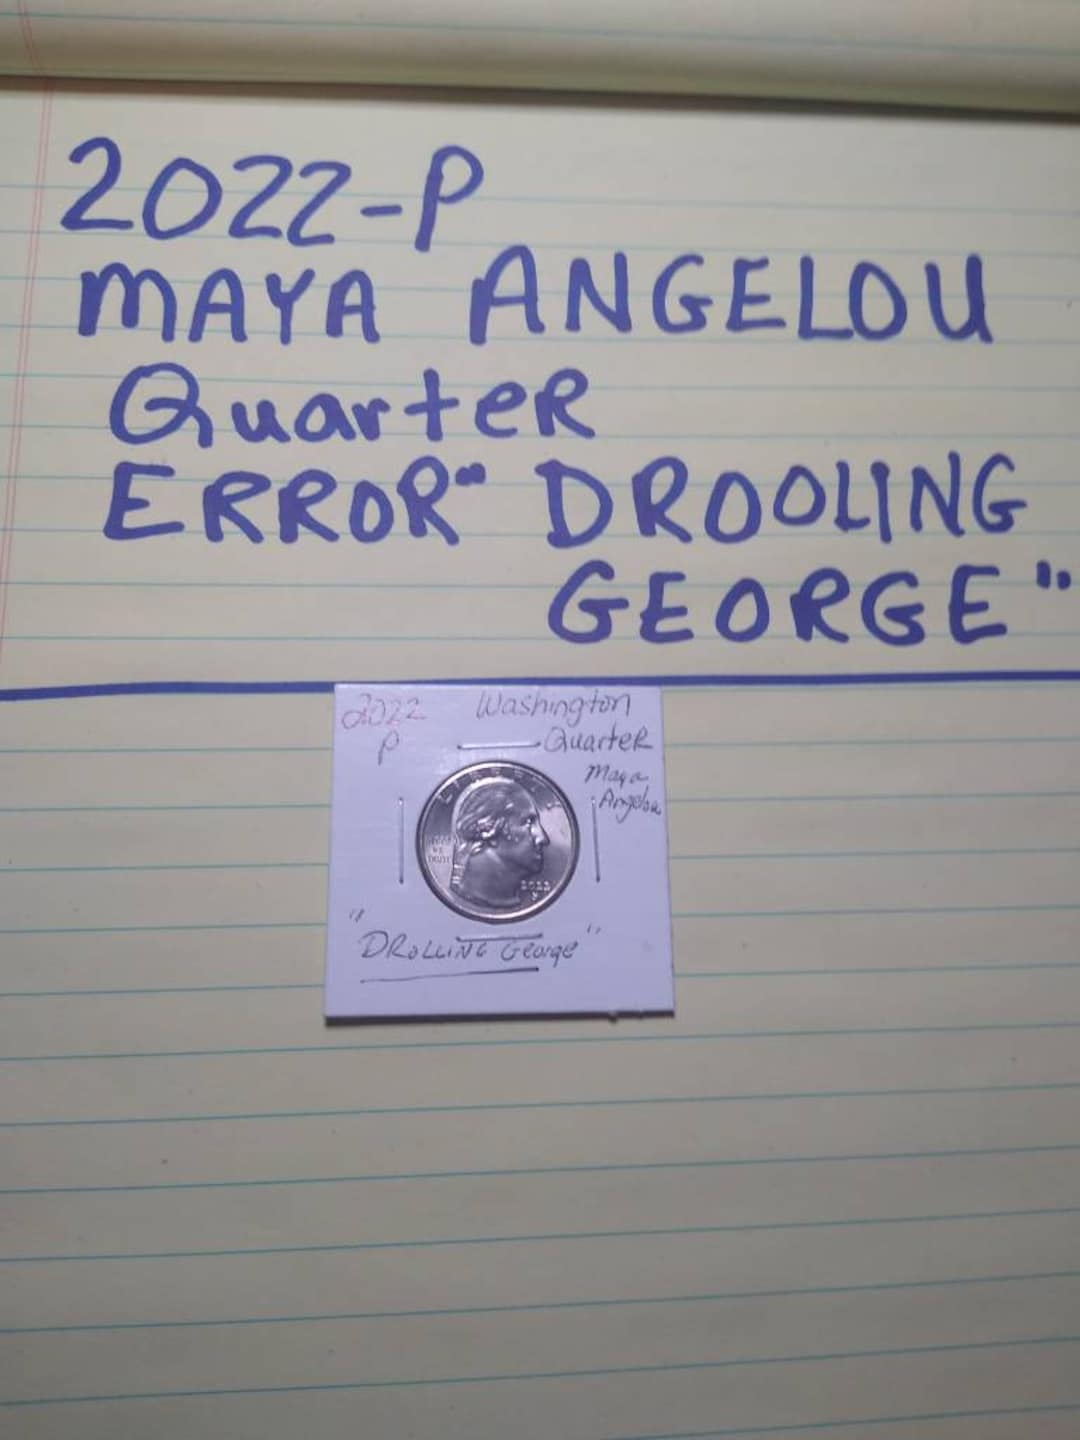 2022-P
MAYA ANGELOU
QuarteR
ERROR" DROOLING
GEORGE"
2022 Washington
P QuarteR
Maya
Angelou
LIBERTY
IN GOD
WE
TRUST
2022
P
"DROLLING George"